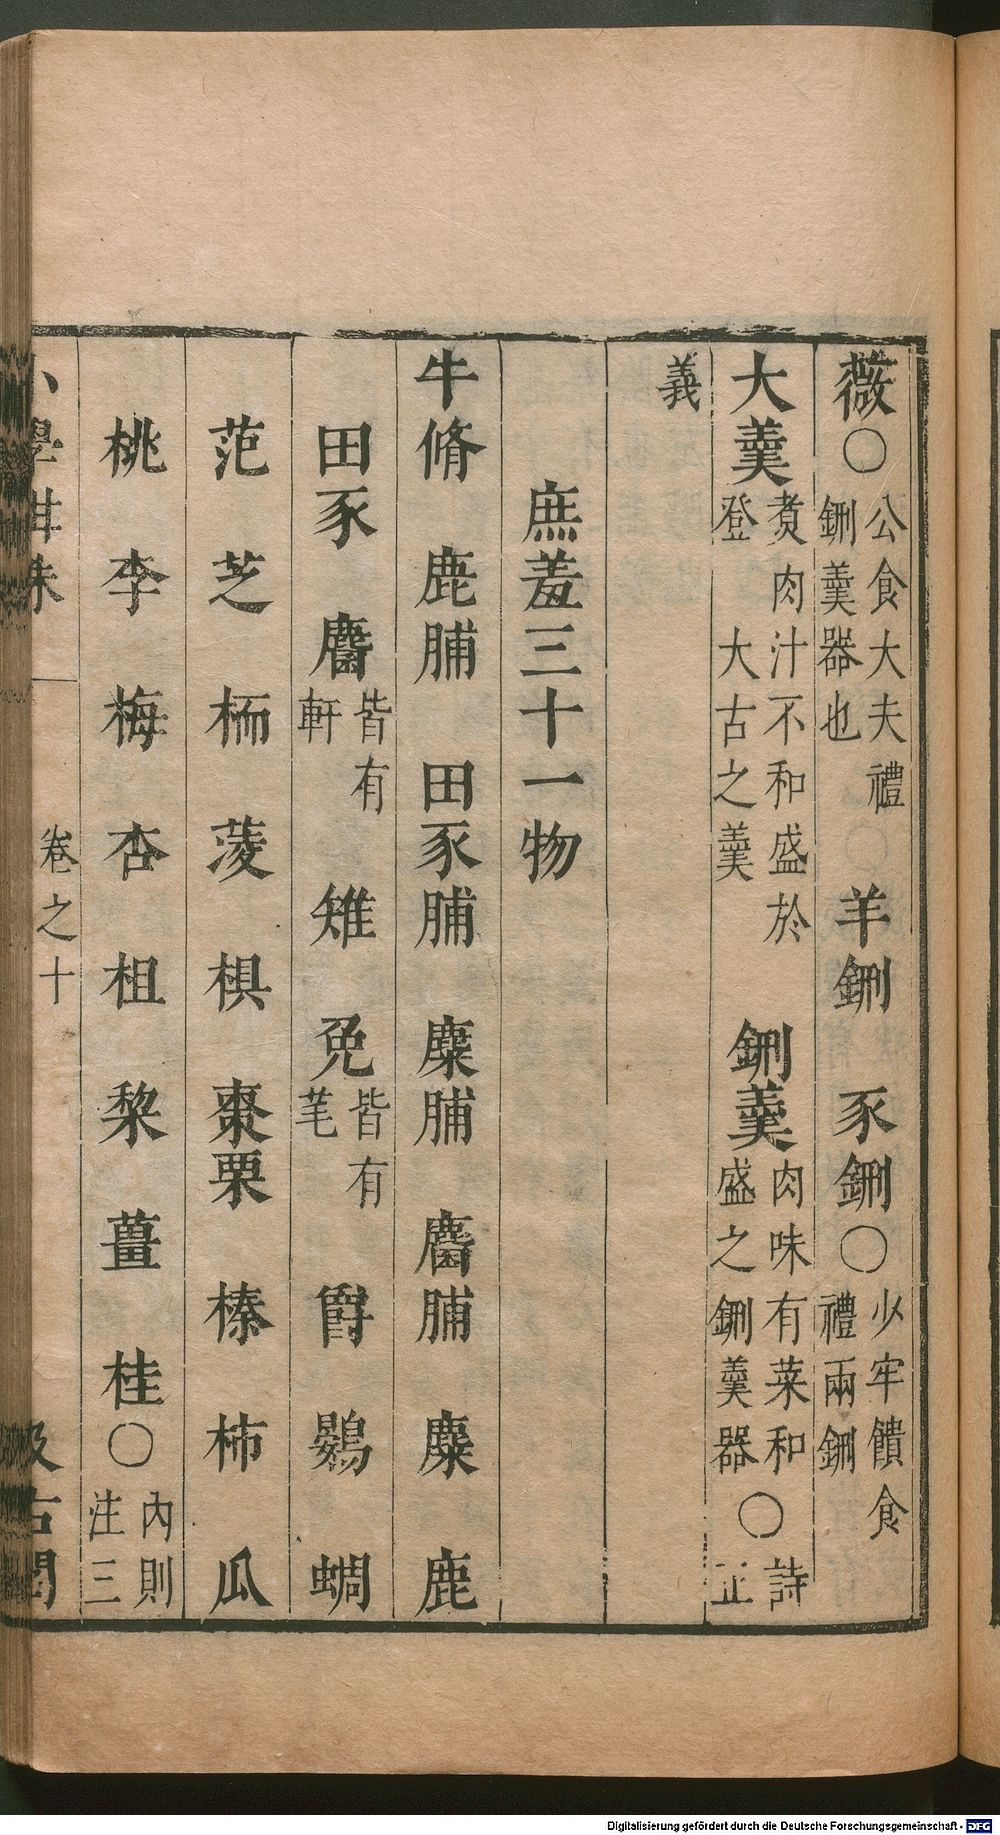 薇〇公食大夫禮鉶羹器也 羊鉶 豕鉶〇少牢饋食禮兩鉶
大羹煑肉汁不和盛於登 大古之羹 鉶羹肉味有菜和盛之鉶羹器〇詩正
義
庶羞三十一物
牛脩 鹿脯 田豕脯 麋脯 麕脯 麋 鹿
田豕 麕皆有軒 雉 兔皆有芼 爵 鷃 蜩
范 芝 栭 蔆 椇 棗 栗 榛 柿 瓜
桃 李 梅 杏 柤 棃 薑 桂〇內則注三
小學紺珠 卷之十 汲古閣
Digitalisierung gefördert durch die Deutsche Forschungsgemeinschaft - DFG